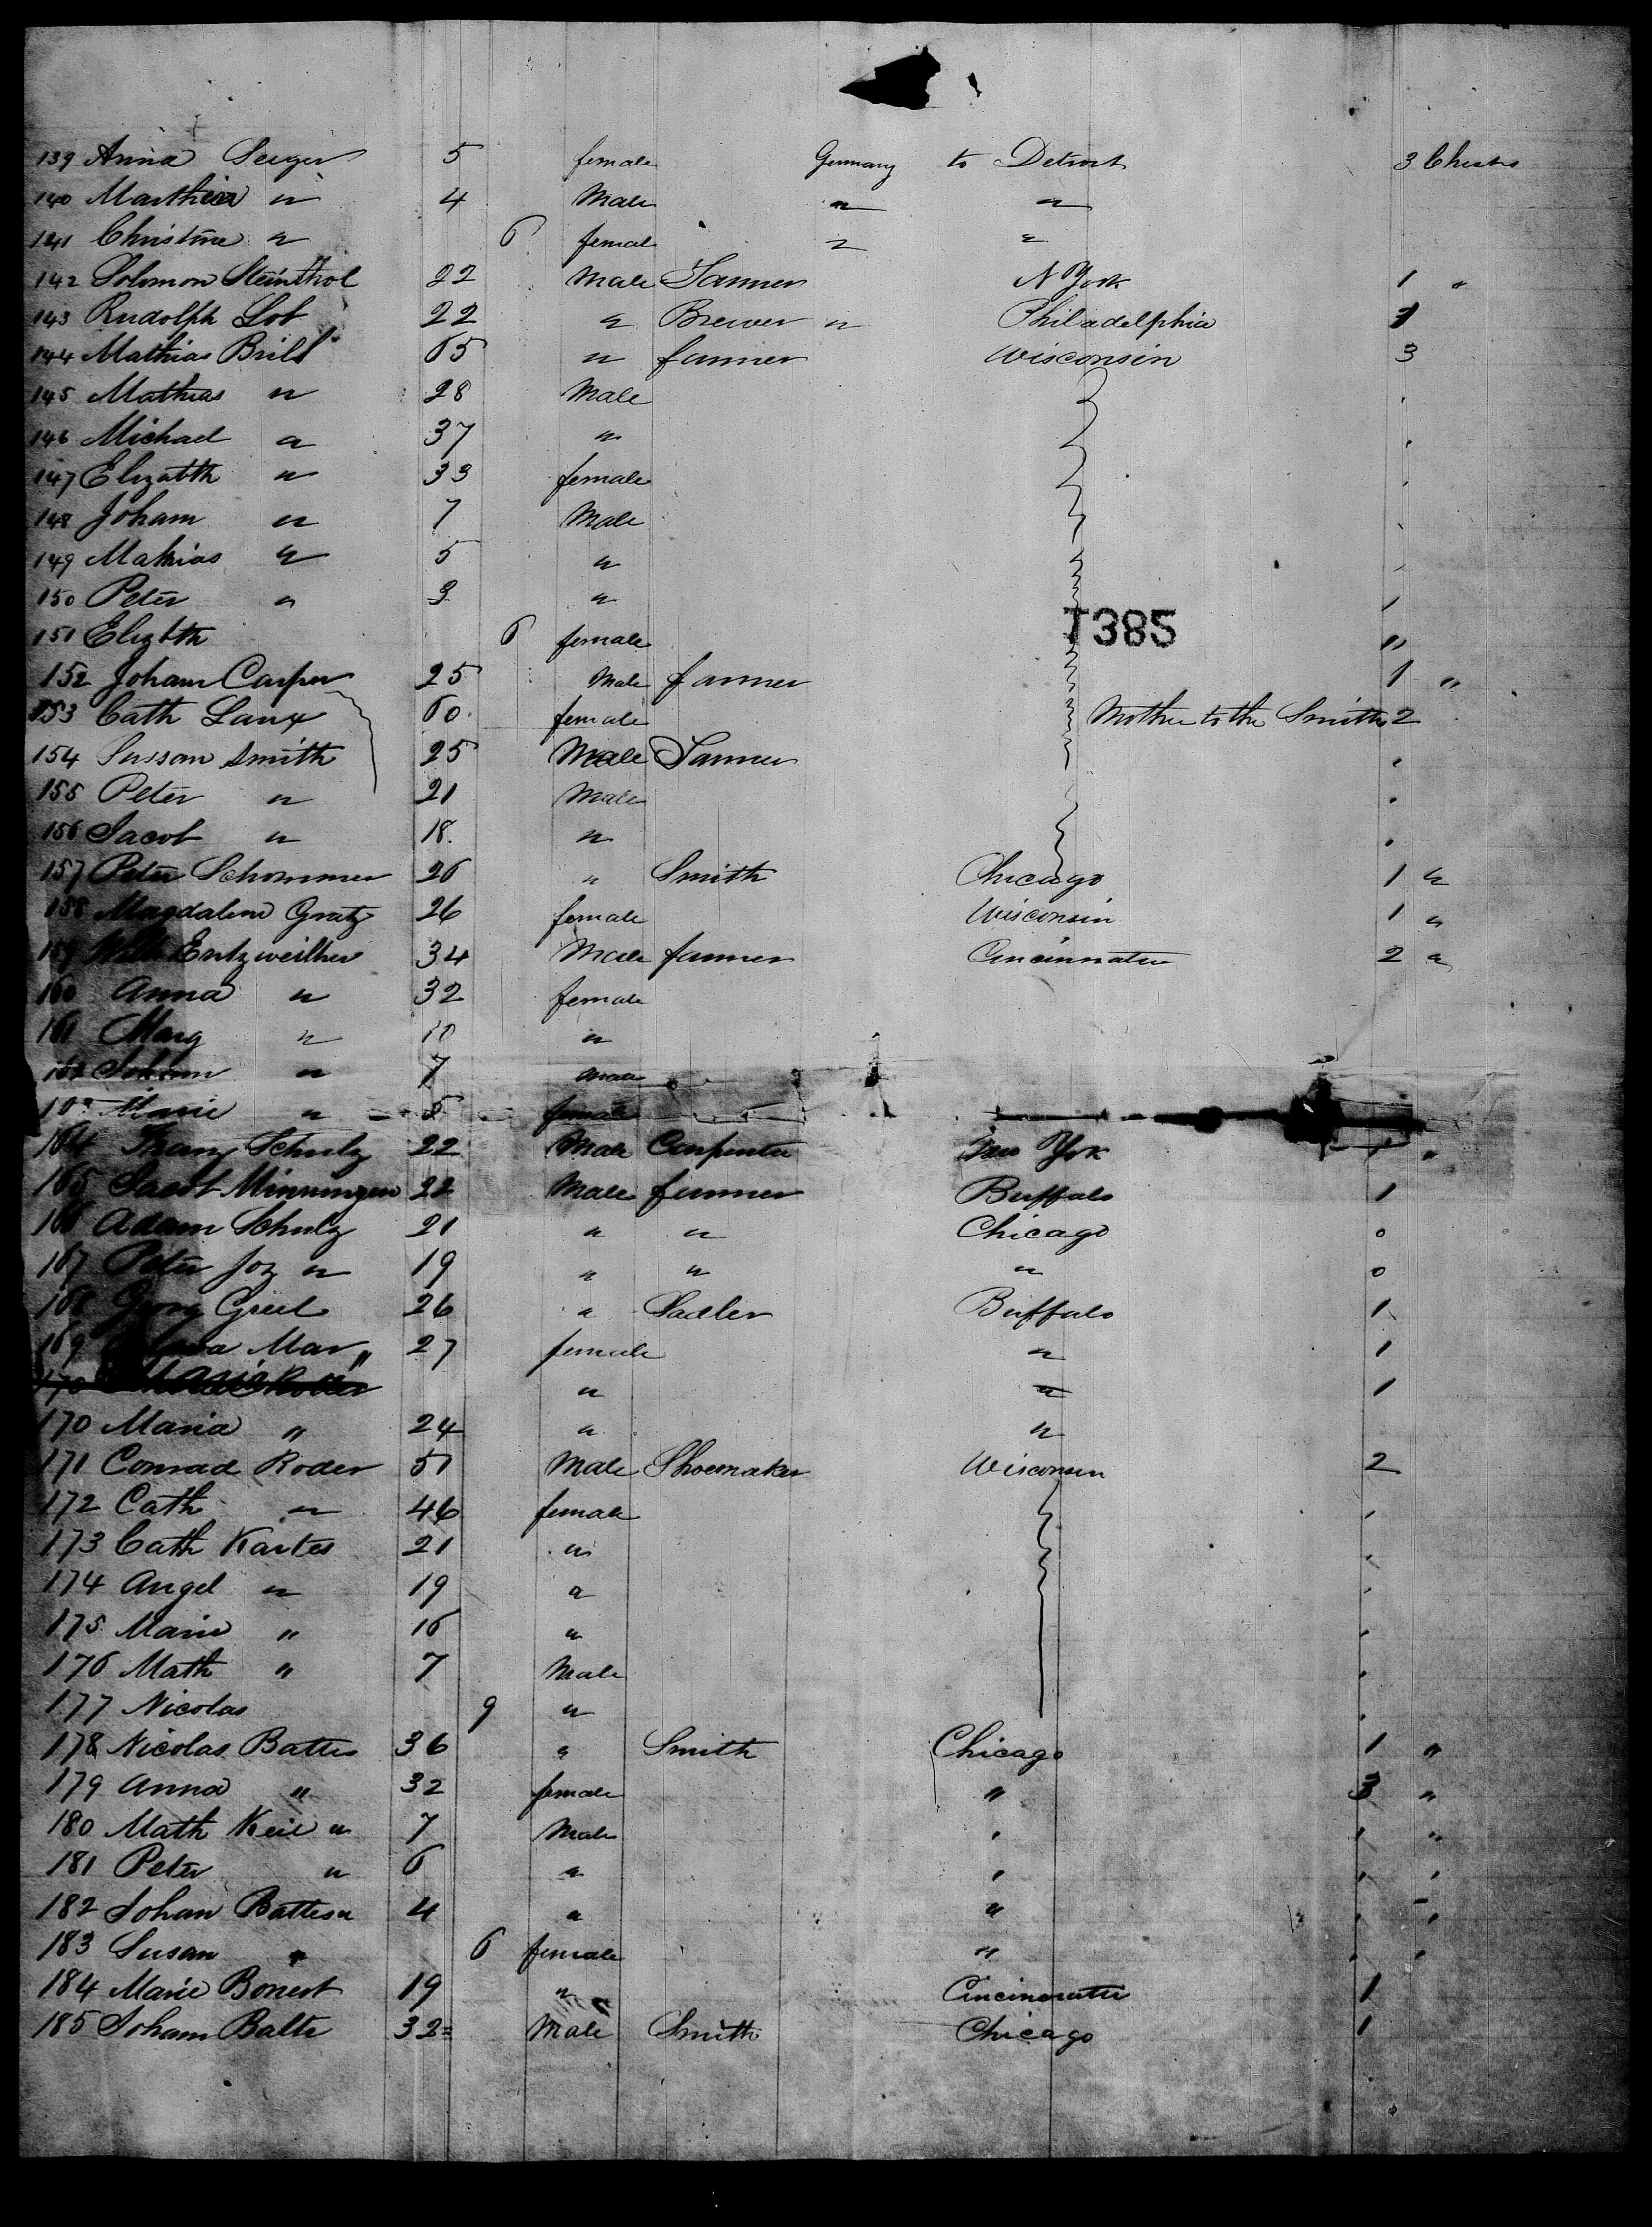 139 Anna Seeger 5 female Germany to Detroit 3 Chests
140 Matthias " 4 Male " "
141 Christine " 6 female " "
142 Solomon Steinthol 22 Male Tanner N York 1 "
143 Rudolph Lob 22 " Brewer " Philadelphia 1
144 Mathias Brill 65 " farmer Wisconsin 3
145 Mathias " 28 Male
146 Michael " 37 "
147 Elizabth " 33 female
148 Joham " 7 Male
149 Mathias " 5 "
150 Peter " 3 "
151 Elizbth 6 female "
T385
152 Joham Casper 25 Male farmer 1 "
153 Cath Laux 60 female Mother to the Smiths 2
154 Sussan Smith 25 Male Tanner
155 Peter " 21 Male
156 Jacob " 18. "
157 Peter Schommer 26 " Smith Chicago 1 "
158 Magdalena Gratz 26 female Wisconsin 1 "
159 Entzweiller 34 Male farmer Cincinnatti 2 "
160 Anna " 32 female
161 Marg " "
162 Johann " 7 Male
163 Marie " 5 female
164 Franz Schulz 22 Male Carpenter New York 1 "
165 Jacob 22 Male farmer Buffalo 1
166 Adam Schulz 21 " " Chicago 0
167 Peter Joz " 19 " " " 0
168 Georg Greil 26 " Sadler Buffalo 1
169 Mar " 27 female " 1
170 " " 1
170 Maria " 24 " "
171 Conrad Roder 51 Male Shoemaker Wisconsin 2
172 Cath " 46 female
173 Cath Kartes 21 "
174 Angel " 19 "
175 Marie " 16 "
176 Math " 7 Male
177 Nicolas 9 "
178 Nicolas Battes 36 " Smith Chicago 1 "
179 Anna " 32 female " 3 "
180 Math Keil " 7 Male " " "
181 Peter " 6 " " " "
182 Johan Battes " 4 " " " "
183 Susan " 6 female " " "
184 Marie Bonert 19 " Cincinnatti 1
185 Joham Balte 32 Male Smith Chicago 1